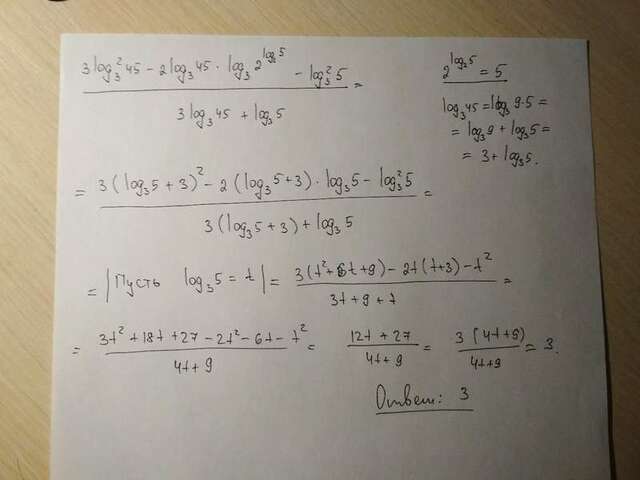 (3log₃²45 − 2log₃45 · log₃2^(log₂5) − log₃²5) / (3log₃45 + log₃5) =
2^(log₂5) = 5
log₃45 = log₃9·5 =
= log₃9 + log₃5 =
= 3 + log₃5.
= (3(log₃5 + 3)² − 2(log₃5 + 3) · log₃5 − log₃²5) / (3(log₃5 + 3) + log₃5) =
= | Пусть log₃5 = t | = (3(t² + 6t + 9) − 2t(t + 3) − t²) / (3t + 9 + t) =
= (3t² + 18t + 27 − 2t² − 6t − t²) / (4t + 9) = (12t + 27) / (4t + 9) = 3(4t + 9) / (4t + 9) = 3.
Ответ: 3